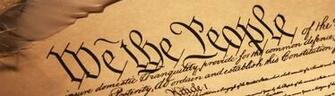 We the People of the
insure domestic Tranquility, provide for the common defence,
Posterity, do ordain and establish this Constitution
Article I